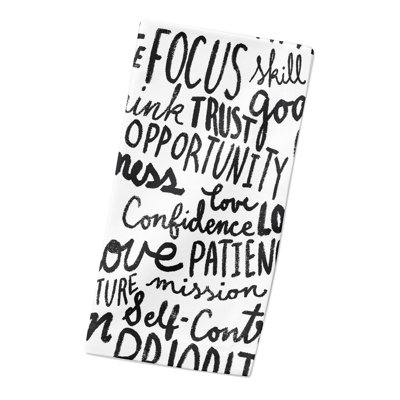 E FOCUS skill
ink TRUST goo
OPPORTUNITY
ness love
Confidence LO
ove PATIEN
TURE mission
n Self-Contr
PRIORIT